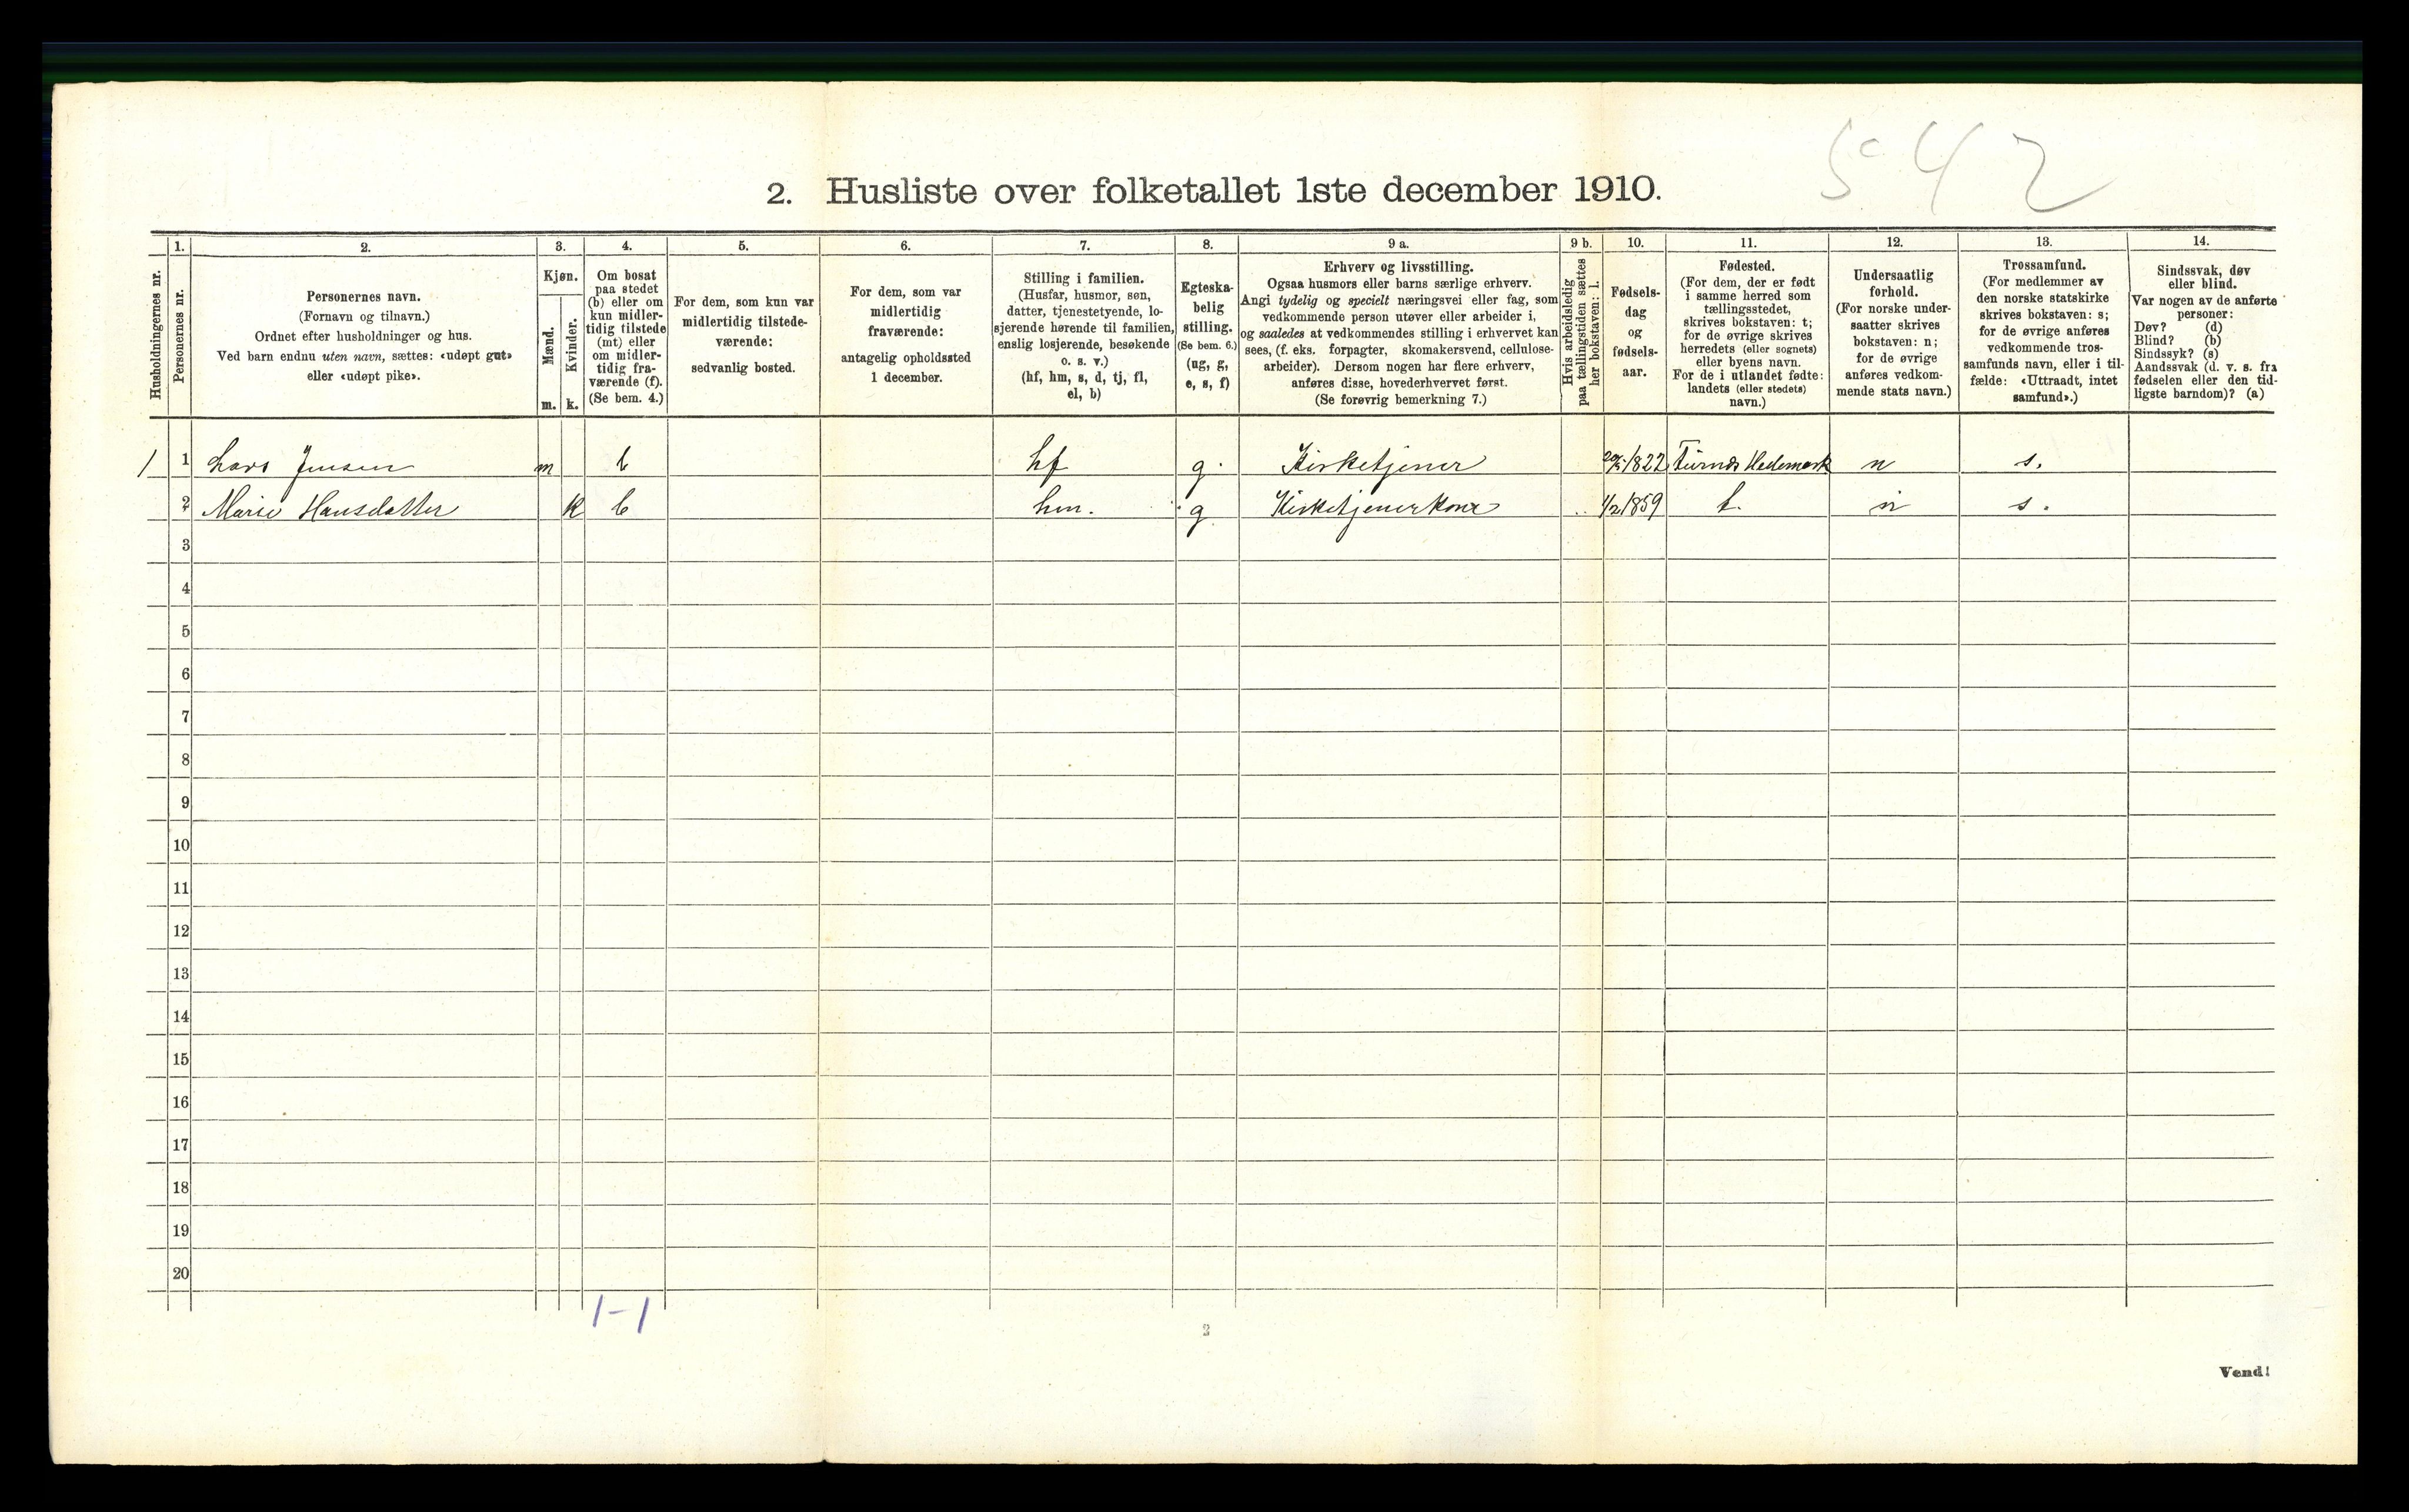 542
2. Husliste over folketallet 1ste december 1910.
Husholdningernes nr.
1.
Personernes nr.
2.
Personernes navn.
(Fornavn og tilnavn.)
Ordnet efter husholdninger og hus.
Ved barn endnu uten navn, sættes: «udøpt gut»
eller «udøpt pike».
3.
Kjøn.
Mænd.
m.
Kvinder.
k.
4.
Om bosat
paa stedet
(b) eller om
kun midler-
tidig tilstede
(mt) eller
om midler-
tidig fra-
værende (f).
(Se bem. 4.)
5.
For dem, som kun var
midlertidig tilstede-
værende:
sedvanlig bosted.
6.
For dem, som var
midlertidig
fraværende:
antagelig opholdssted
1 december.
7.
Stilling i familien.
(Husfar, husmor, søn,
datter, tjenestetyende, lo-
sjerende hørende til familien,
enslig losjerende, besøkende
o. s. v.)
(hf, hm, s, d, tj, fl,
el, b)
8.
Egteska-
belig
stilling.
(Se bem. 6.)
(ug, g,
e, s, f)
9 a.
Erhverv og livsstilling.
Ogsaa husmors eller barns særlige erhverv.
Angi tydelig og specielt næringsvei eller fag, som
vedkommende person utøver eller arbeider i,
og saaledes at vedkommendes stilling i erhvervet kan
sees, (f. eks. forpagter, skomakersvend, cellulose-
arbeider). Dersom nogen har flere erhverv,
anføres disse, hovederhvervet først.
(Se forøvrig bemerkning 7.)
9 b.
Hvis arbeidsledig
paa tællingstiden sættes
her bokstaven: l.
10.
Fødsels-
dag
og
fødsels-
aar.
11.
Fødested.
(For dem, der er født
i samme herred som
tællingsstedet,
skrives bokstaven: t;
for de øvrige skrives
herredets (eller sognets)
eller byens navn.
For de i utlandet fødte:
landets (eller stedets)
navn.)
12.
Undersaatlig
forhold.
(For norske under-
saatter skrives
bokstaven: n;
for de øvrige
anføres vedkom-
mende stats navn.)
13.
Trossamfund.
(For medlemmer av
den norske statskirke
skrives bokstaven: s;
for de øvrige anføres
vedkommende tros-
samfunds navn, eller i til-
fælde: «Uttraadt, intet
samfund».)
14.
Sindssvak, døv
eller blind.
Var nogen av de anførte
personer:
Døv? (d)
Blind? (b)
Sindssyk? (s)
Aandssvak (d. v. s. fra
fødselen eller den tid-
ligste barndom)? (a)
1 1 Lars Jensen m b hf g. Kirketjener 1822 Furnæs Hedemark n s.
2 Marie Hansdatter k b hm. g Kirketjenerkone 1/2 1859 t. n s.
3
4
5
6
7
8
9
10
11
12
13
14
15
16
17
18
19
20
1-1
2
Vend!